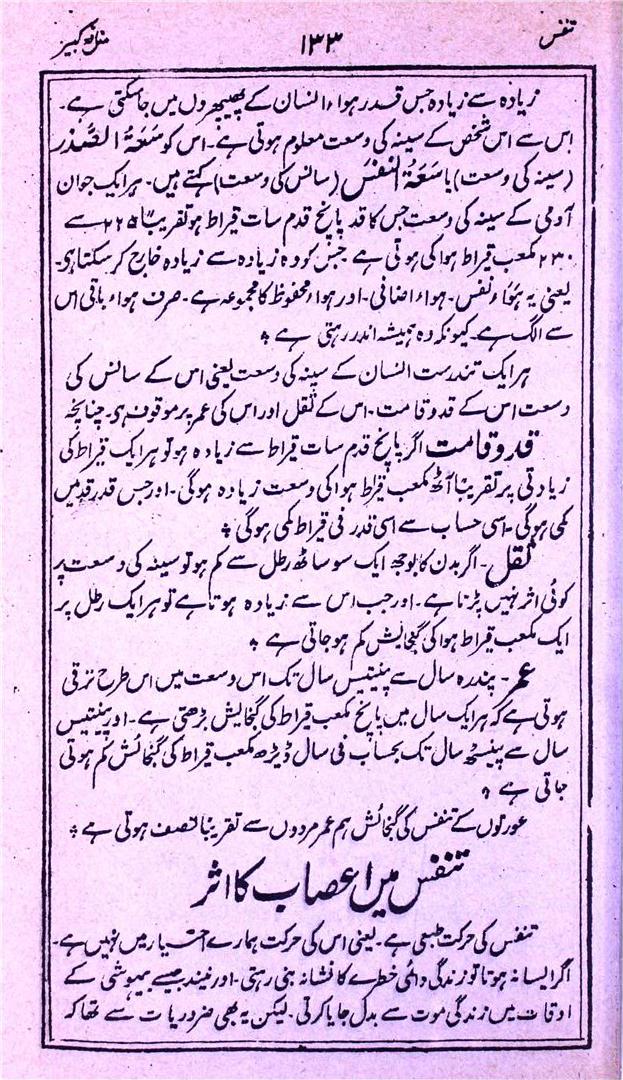 تنفس ۱۳۳ منافع کبیر
زیادہ سے زیادہ جس قدر ہواء انسان کے پھیپھڑوں میں جاسکتی ہے۔
اس سے اس شخص کے سینہ کی وسعت معلوم ہوتی ہے۔ اس کو سَعَۃُ الصَّدْر
(سینہ کی وسعت) یا سَعَۃُ النَّفَس (سانس کی وسعت) کہتے ہیں۔ ہر ایک جوان
آدمی کے سینہ کی وسعت جس کا قد پانچ قدم سات قیراط ہو تقریباً ۲۲۵ سے
۲۳۰ مکعب قیراط ہوا کی ہوتی ہے جس کو وہ زیادہ سے زیادہ خارج کر سکتا ہی۔
یعنی یہ ہَوَاء نفس۔ ہواء اضافی۔ اور ہواء محفوظ کا مجموعہ ہے۔ صرف ہواء باقی اس
سے الگ ہے۔ کیونکہ وہ ہمیشہ اندر رہتی ہے ؞
ہر ایک تندرست انسان کے سینہ کی وسعت یعنی اس کے سانس کی
وسعت اس کے قد و قامت۔ اس کے ثقل اور اس کی عمر پر موقوف ہی۔ چنانچہ
قد و قامت اگر پانچ قدم سات قیراط سے زیادہ ہو تو ہر ایک قیراط کی
زیادتی پر تقریباً آٹھ مکعب قیراط ہوا کی وسعت زیادہ ہوگی۔ اور جس قدر قد میں
کمی ہوگی۔ اسی حساب سے اسی قدر فی قیراط کمی ہوگی ؞
ثقل۔ اگر بدن کا بوجھ ایک سو ساٹھ رطل سے کم ہو تو سینہ کی وسعت پر
کوئی اثر نہیں پڑتا ہے۔ اور جب اس سے زیادہ ہوتا ہے تو ہر ایک رطل پر
ایک مکعب قیراط ہوا کی گنجایش کم ہو جاتی ہے ؞
عمر۔ پندرہ سال سے پینتیس سال تک اس وسعت میں اس طرح ترقی
ہوتی ہے کہ ہر ایک سال میں پانچ مکعب قیراط کی گنجایش بڑھتی ہے۔ اور پینتیس
سال سے پینسٹھ سال تک بحساب فی سال ڈیڑھ مکعب قیراط کی گنجائش کم ہوتی
جاتی ہے ؞
عورتوں کے تنفس کی گنجائش ہم عمر مردوں سے تقریباً نصف ہوتی ہے ؞
تنفس میں اعصاب کا اثر
تنفس کی حرکت طبعی ہے۔ یعنی اس کی حرکت ہمارے اختیار میں نہیں ہے۔
اگر ایسا نہ ہوتا تو زندگی دائمی خطرے کا نشانہ بنی رہتی۔ اور نیند جیسے بیہوشی کے
اوقات میں زندگی موت سے بدل جایا کرتی۔ لیکن یہ بھی ضروریات سے تھا کہ